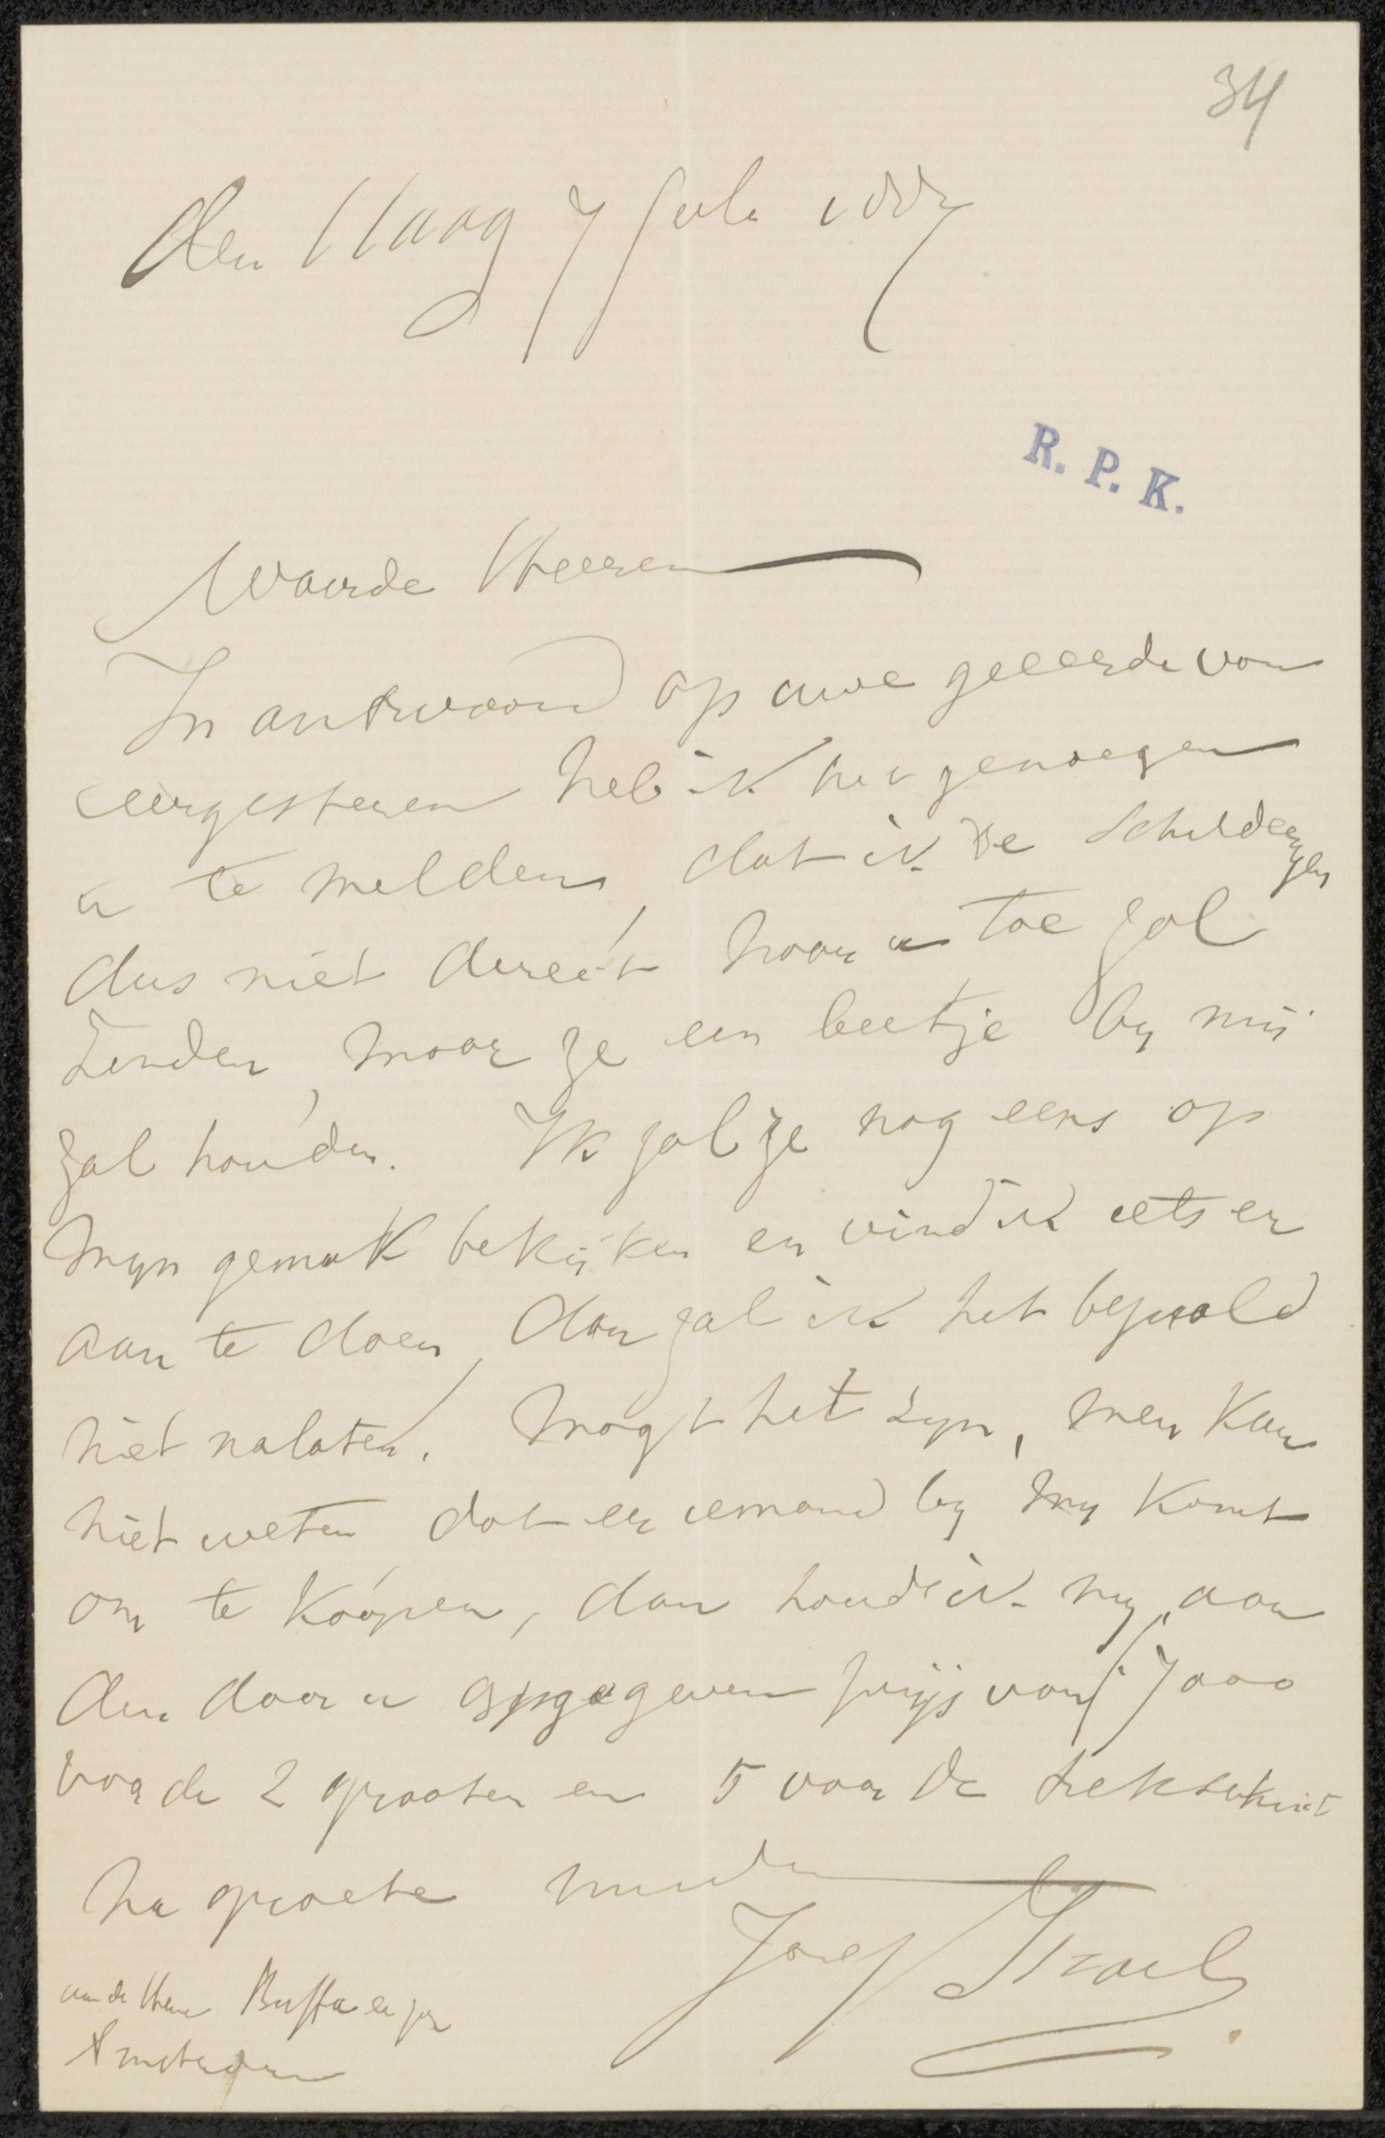 34
den Haag 7 Juli 1887
R. P. K.
Waarde Heeren
In antwoord op uwe geeerde van
eergisteren heb ik het genoegen
u te melden, dat ik de Schilderyen
dus niet direct naar u toe zal
Zenden, maar ze een beetje by mij
zal houden. Ik zal ze nog eens op
myn gemak bekijken en vind ik iets er
aan te doen, dan zal ik het bepaald
niet nalaten. Mogt het zyn, men kan
niet weten dat er iemand by my komt
om te koopen, dan houd ik my aan
den door u opgegeven prijs van f 7000
voor de 2 grooten en 5 voor de trekschuit
na groete
Jozef Israels
aan de Heeren Buffa en zn
Amsterdam